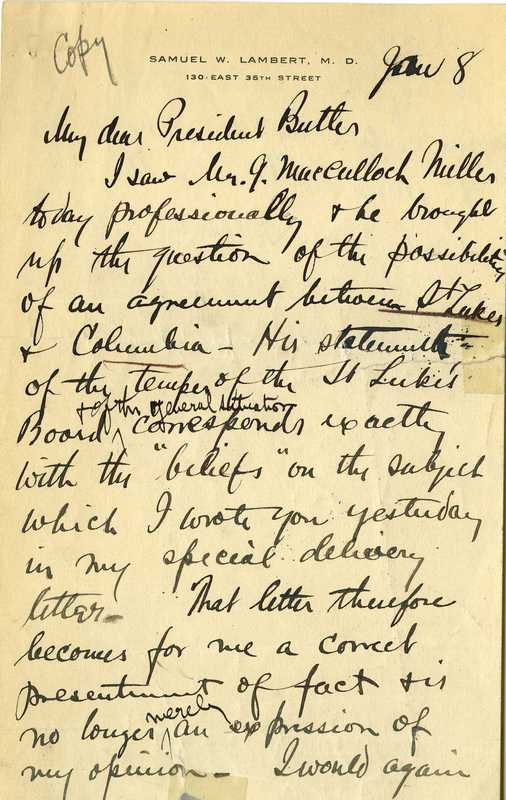 Copy
SAMUEL W. LAMBERT, M. D.
130 EAST 35TH STREET
Jan 8
My dear President Butler
I saw Mr. G. MacCulloch Miller
today professionally & he brought
up the question of the possibility
of an agreement between St Lukes
& Columbia – His statement
of the temper of the St Luke's
& of the general situation
Board, corresponds exactly
with the "beliefs" on the subject
which I wrote you yesterday
in my special delivery
letter – That letter therefore
becomes for me a correct
presentment of fact & is
merely
no longer an expression of
my opinion – I would again